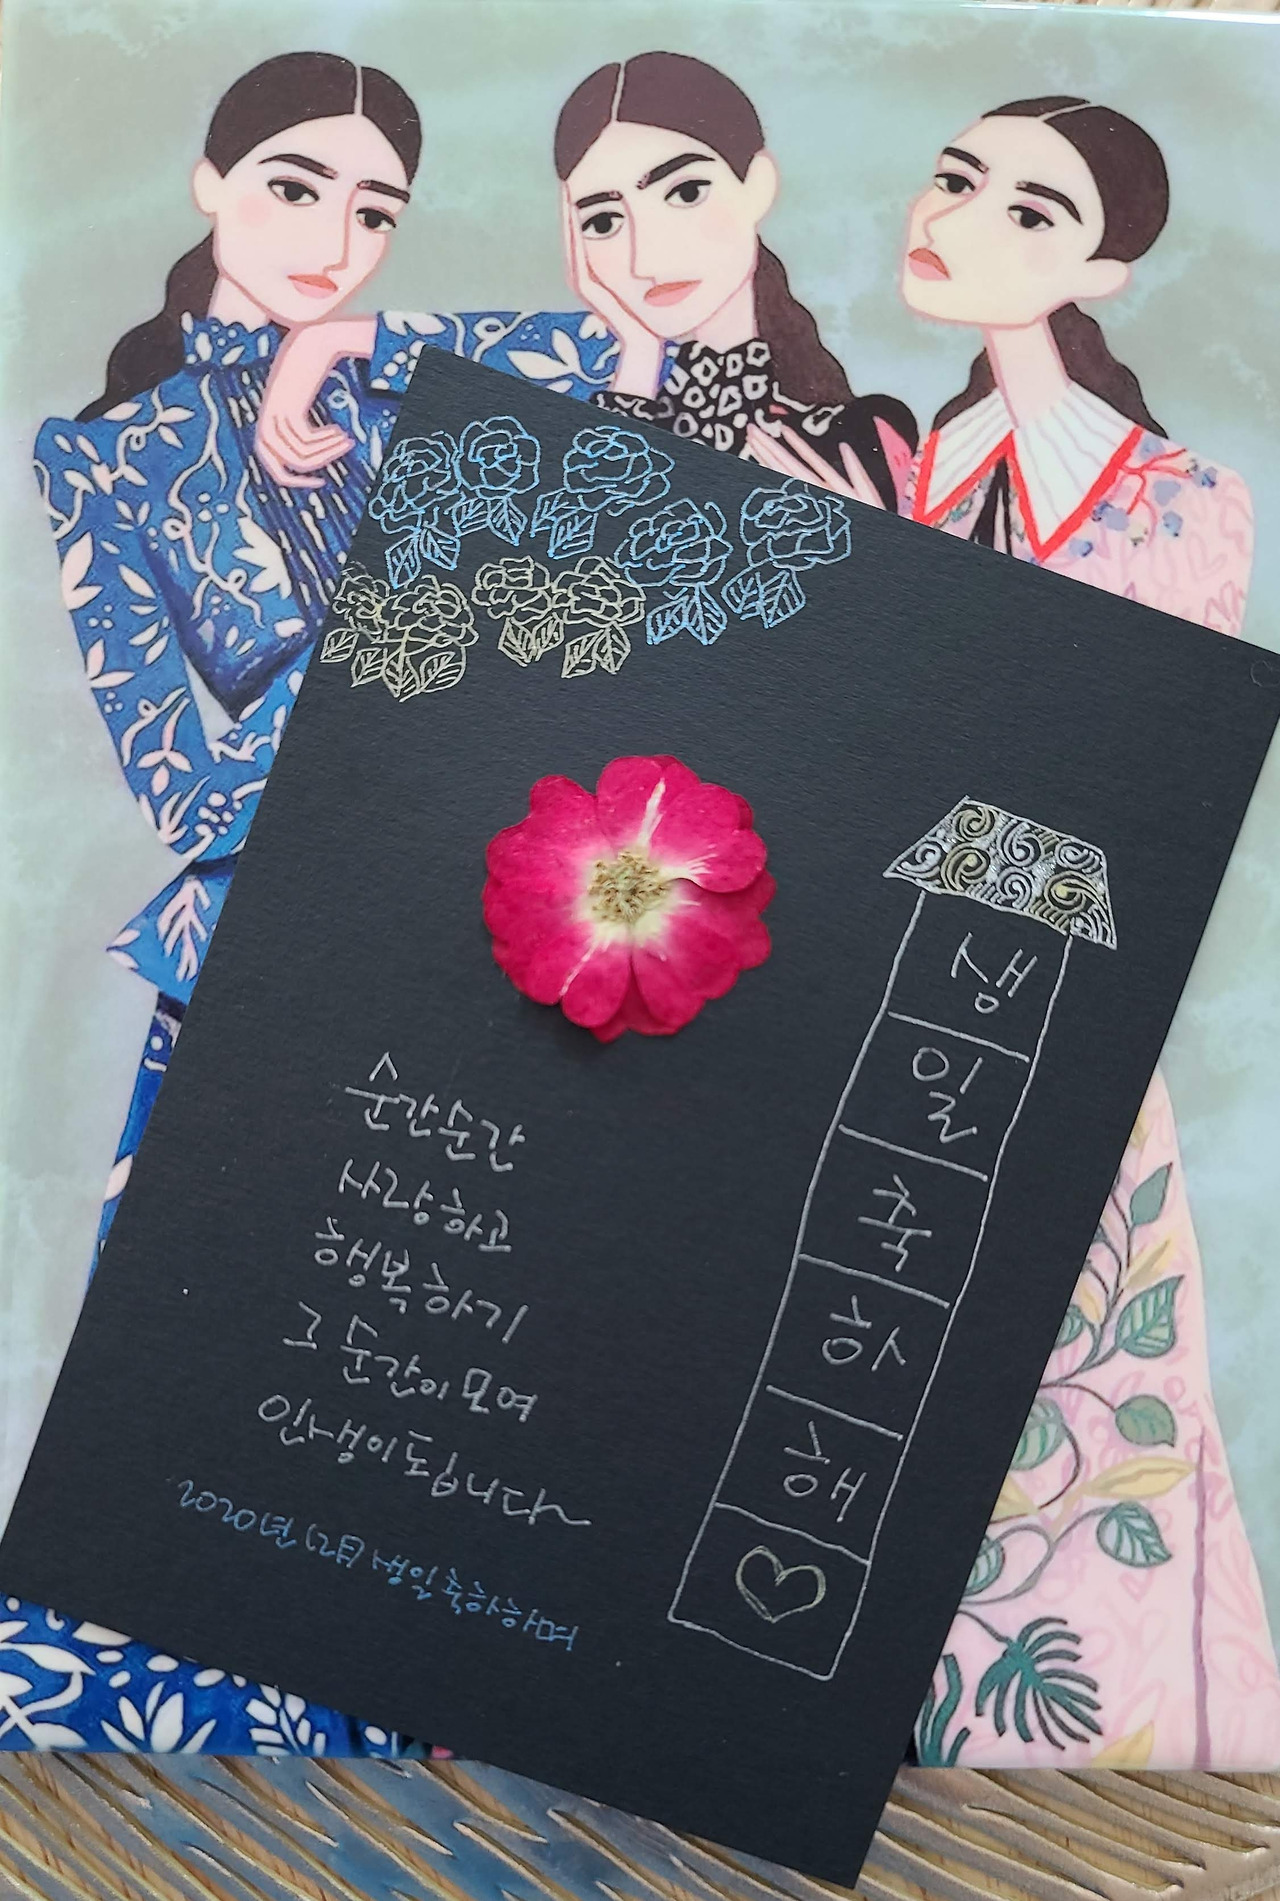 생
일
축
하
해
순간순간
사랑하고
행복하기
그 순간이 모여
인생이 됩니다~
2020년 12月 생일 축하하며